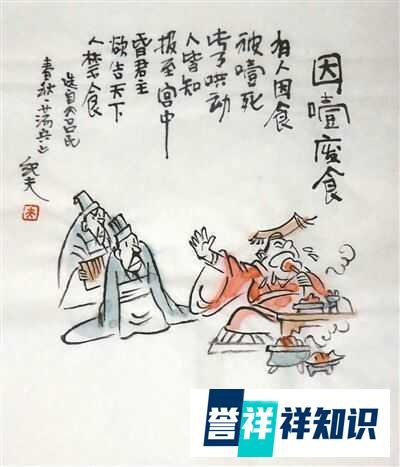 因噎废食
有人因食
被噎死
此事哄动
人皆知
报至宫中
昏君主
欲告天下
人禁食
选自《吕氏
春秋·荡兵》
纪夫
誉祥祥知识